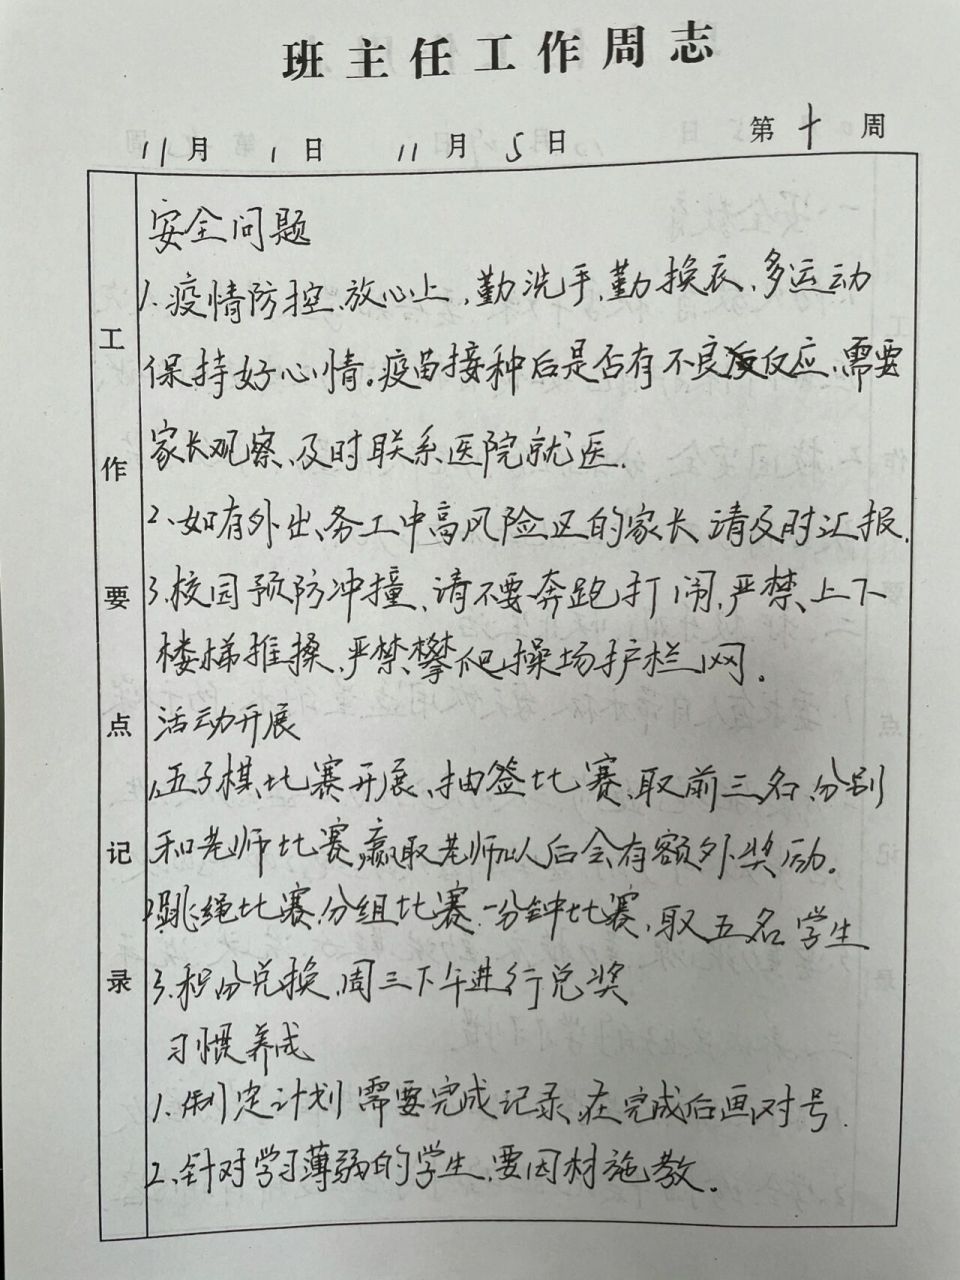 班主任工作周志
11月 1日 11月 5日 第十周
工作要点记录
安全问题
1.疫情防控、放心上,勤洗手、勤换衣、多运动
保持好心情。疫苗接种后是否有不良反应、需要
家长观察、及时联系医院就医.
2、如有外出、务工中高风险区的家长 请及时汇报.
3.校园预防冲撞、请不要奔跑打闹,严禁、上下
楼梯推搡、严禁攀爬操场护栏网。
活动开展
1.五子棋比赛开展、抽签比赛、取前三名、分别
和老师比赛,赢取老师以后会有额外奖励.
2.跳绳比赛、分组比赛 一分钟比赛、取五名学生
3.积分兑换、周三下午进行兑奖
习惯养成
1.制定计划 需要完成记录、在完成后画对号
2、针对学习薄弱的学生、要因材施教。